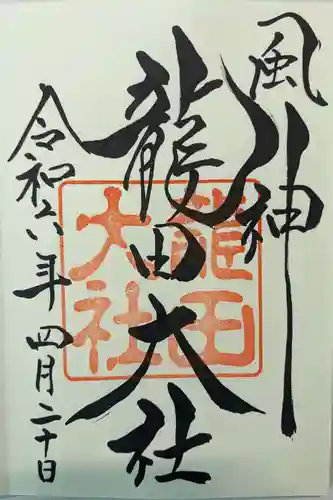 風神
龍田大社
令和六年四月二十日
龍田
大社